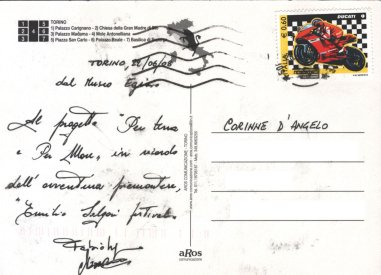 TORINO
1) Palazzo Carignano - 2) Chiesa della Gran Madre di Dio
3) Palazzo Madama - 4) Mole Antonelliana
5) Piazza San Carlo - 6) Palazzo Reale - 7) Basilica di
1 2
4 5 6
3 7
TORINO, 22/06/08
dal Museo Egizio
DUCATI
€ 0,60
ITALIA
Al progetto "Per terra
e Per Mare", in ricordo
dell'avventura piemontese,
"Emilio Salgari festival"
CORINNE D'ANGELO
AROS COMUNICAZIONE - TORINO
aRos
comunicazione